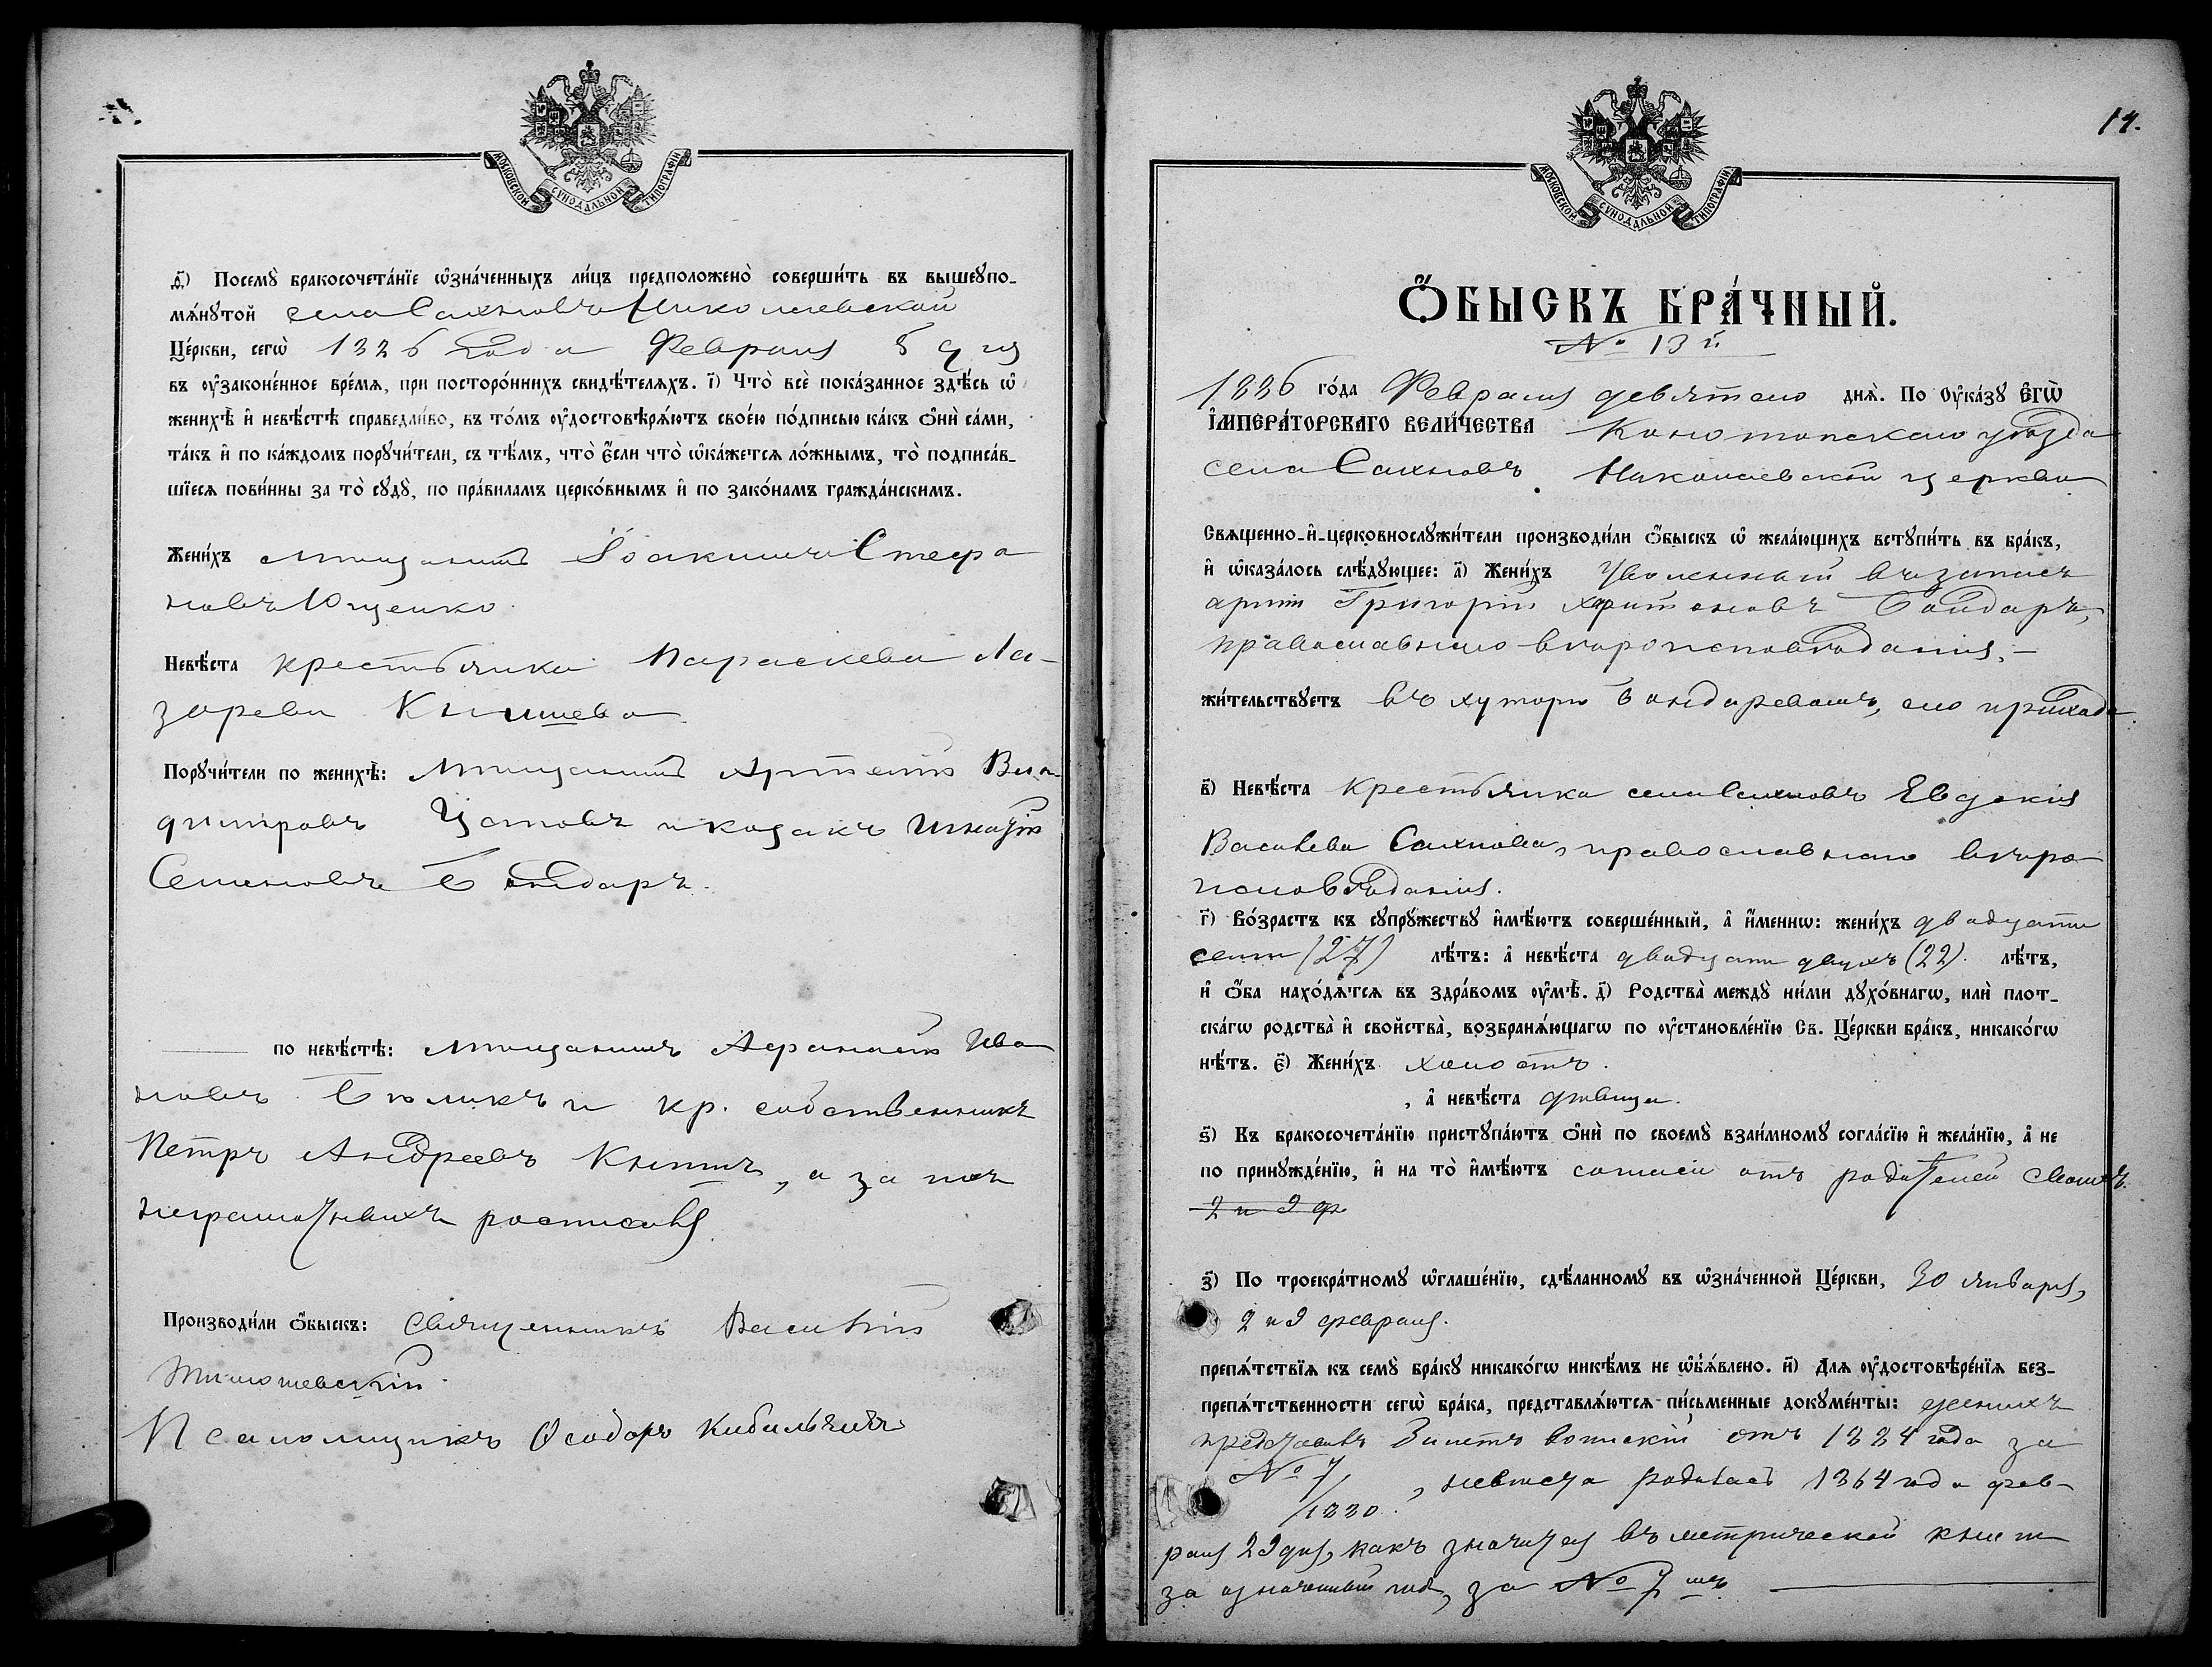 МОСКОВСКОЙ СѴНОДАЛЬНОЙ ТИПОГРАФІИ
д҃) Посемꙋ̀ бракосочета́нїе ѡ҆зна́ченныхъ ли́цъ предположено̀ соверши́ть въ вышеꙋпо-
мѧ́нꙋтой села Сахновъ Николаевской
Це́ркви, сегѡ̀ 1886 года Февраля 5 дня
въ ᲂу҆законе́нное вре́мѧ, при посторо́ннихъ свидѣ́телѧхъ. і҃) Что̀ всѐ пока́занное здѣ́сь ѡ҆
женихѣ̀ и҆ невѣ́стѣ справедли́во, въ то́мъ ᲂу҆достовѣрѧ́ютъ свое́ю по́дписью ка́къ ѻ҆нѝ са́ми,
та́къ и҆ по ка́ждомъ порꙋчи́тели, съ тѣ́мъ, что̀ є҆́сли что̀ ѡ҆ка́жетсѧ ло́жнымъ, то̀ подписа́в-
шїесѧ пови́нны за то̀ сꙋдꙋ̀, по пра́виламъ церко́внымъ и҆ по зако́намъ гражда́нскимъ.
Жени́хъ мѣщанинъ Іоакимъ Стефа
новъ Ющенко.
Невѣ́ста крестьянка Параскева Ла-
зарева Кнышева
Порꙋчи́тели по женихѣ̀: мѣщанинъ Артемій Вла-
димировъ и козакъ Игнатій
Семеновъ Бондарь.
по невѣ́стѣ: мѣщанинъ Афанасій Ива
новъ и кр. собственникъ
Петръ Андреевъ Кнышъ, а за ихъ
неграмотныхъ росписався
Производи́ли ѻ҆́быскъ: Священникъ Василій
Тимошевскій.
Псаломщикъ Ѳеодоръ Кибальчичъ
14.
МОСКОВСКОЙ СѴНОДАЛЬНОЙ ТИПОГРАФІИ
Ѻ҆́БЫСКЪ БРА́ЧНЫЙ.
№ 13й
1886 го́да Февраля девятаго днѧ̀. По Оу҆ка́зꙋ Є҆гѡ̀
І҆мпера́торскаго Вели́чества Конотопскаго уѣзда
села Сахновъ Николаевской церкви
Свѧщенно-и҆-церковнослꙋжи́тели производи́ли ѻ҆́быскъ ѡ҆ жела́ющихъ встꙋпи́ть въ бра́къ,
и҆ ѡ҆каза́лось слѣ́дꙋющее: а҃) Жени́хъ Уволенный въ запасъ
арміи Григорій Харитоновъ Бондарь,
православнаго вѣроисповѣданія,–
жи́тельствꙋетъ въ хуторѣ Бондаревомъ, сего прихода.
в҃) Невѣ́ста Крестьянка села Сахновъ Евдокія
Васильева Сахнова, православнаго вѣро-
исповѣданія.
г҃) Во́зрастъ къ сꙋпрꙋ́жествꙋ и҆мѣ́ютъ соверше́нный, а҆ и҆́меннѡ: жени́хъ двадцати
семи (27) лѣ́тъ: а҆ невѣ́ста двадцати двухъ (22). лѣ́тъ,
и҆ ѻ҆́ба нахо́дѧтсѧ въ здра́вомъ ᲂу҆мѣ̀. д҃) Родства̀ междꙋ̀ ни́ми дꙋхо́внагѡ, илѝ плот-
ска́гѡ родства̀ и҆ свойства̀, возбранѧ́ющагѡ по ᲂу҆становле́нїю Св. Це́ркви бра́къ, никако́гѡ
нѣ́тъ. є҃) Жени́хъ холостъ.
, а҆ невѣ́ста дѣвица.
ѕ҃) Къ бракосочета́нїю пристꙋпа́ютъ ѻ҆нѝ по своемꙋ̀ взаи́мномꙋ согла́сїю и҆ жела́нїю, а҆ не
по принꙋжде́нїю, и҆ на то̀ и҆мѣ́ютъ согласіе отъ родителей своихъ.
2 и 9 ф
з҃) По троекра́тномꙋ ѡ҆глаше́нїю, сдѣ́ланномꙋ въ ѡ҆зна́ченной Це́ркви, 30 января,
2 и 9 февраля.
препѧ́тствїѧ къ семꙋ̀ бра́кꙋ никако́гѡ никѣ́мъ не ѡ҆б̾ѧ́влено. и҃) Длѧ ᲂу҆достовѣре́нїѧ без-
препѧ́тственности сегѡ̀ бра́ка, представлѧ́ютсѧ пи́сьменные докꙋме́нты: женихъ
представилъ Билетъ воинскій отъ 1884 года за
№ 7/1880, невѣста родилась 1864 года фев-
раля 29 дня, какъ значится въ метрической книгѣ
за означенный годъ, за № 7мъ.